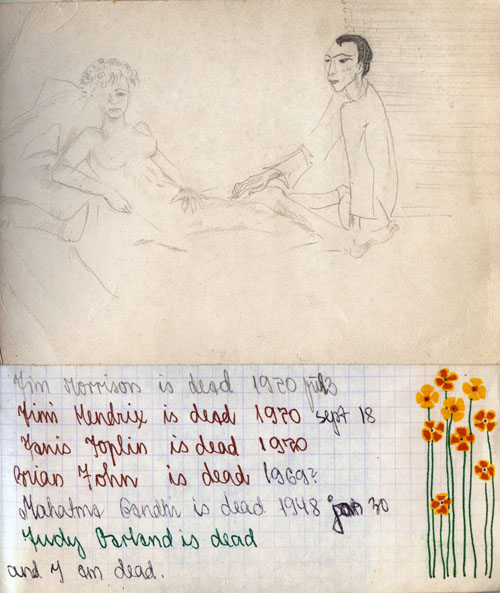 Jim Morrison is dead 1970 july 3
Jimi Hendrix is dead 1970 sept 18
Janis Joplin is dead 1970
Brian John is dead 1969?
Mahatma Gandhi is dead 1948 jan 30
Judy Garland is dead
and I am dead.